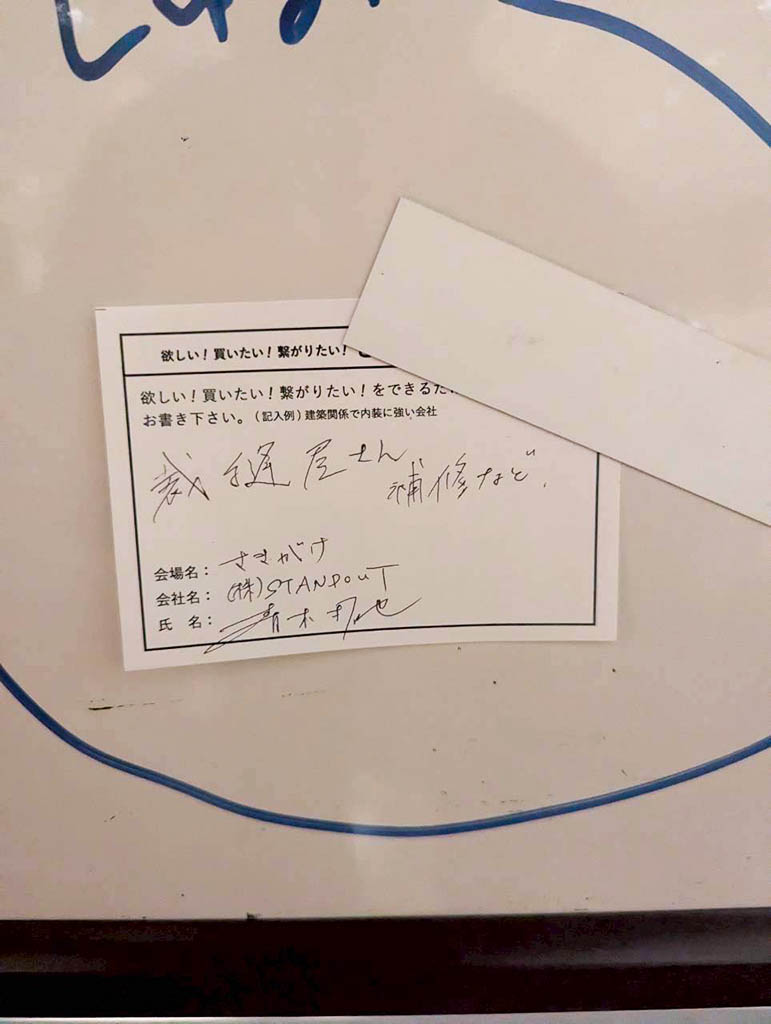 欲しい！買いたい！繋がりたい！
欲しい！買いたい！繋がりたい！をできるだけ
お書き下さい。（記入例）建築関係で内装に強い会社
裁縫屋さん
補修など、
会場名：さきがけ
会社名：(株)STANDOUT
氏　名：青木